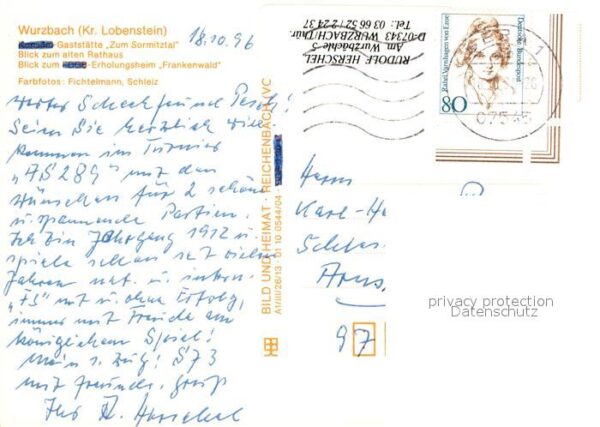 Wurzbach (Kr. Lobenstein)
-Gaststätte „Zum Sormitztal“
Blick zum alten Rathaus
Blick zum -Erholungsheim „Frankenwald“
Farbfotos: Fichtelmann, Schleiz
18.10.96
Werter Schachfreund
Seien Sie herzlich will
kommen im Turnier
"FS 289" mit den
Wünschen für 2 schöne
u. spannende Partien.
Ich bin Jahrgang 1912 u.
spiele schon seit vielen
Jahren nat. u. intern.
"FS" mit u. ohne Erfolg,
immer mit Freude am
königlichen Spiel!
Mein 1. Zug: 5773
mit freundl. Gruß
Ihr R. Herschel
BILD UND HEIMAT · REICHENBACH (V)
A1/III/26/13 01 10 0544/04
RUDOLF HERSCHEL
Am Wurzbächle 5
D-07343 WURZBACH/Thür
Tel.: 03 66 52 / 2 24 37
Rahel Varnhagen von Ense
Deutsche Bundespost
80
Herrn
Karl-H
97
privacy protection
Datenschutz